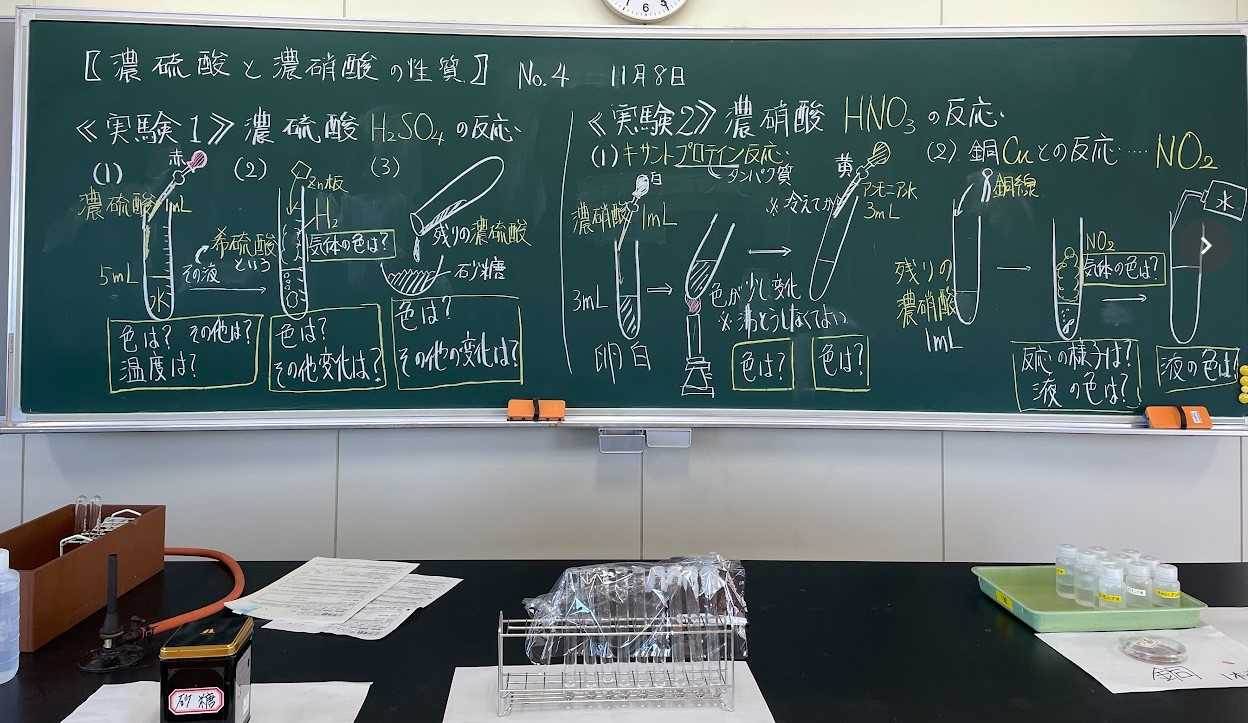 〖濃硫酸と濃硝酸の性質〗 No.4 11月8日
≪実験1≫ 濃硫酸 H₂SO₄ の反応
(1)
赤
濃硫酸 1mL
5mL
水
色は? その他は?
温度は?
その液
希硫酸
という
(2)
Zn板
H₂
気体の色は?
色は?
その他変化は?
(3)
残りの濃硫酸
砂糖
色は?
その他の変化は?
≪実験2≫ 濃硝酸 HNO₃ の反応
(1) キサントプロテイン反応
タンパク質
白
濃硝酸 1mL
3mL
卵白
色が少し変化
※沸とうしなくてよい
色は?
黄
※冷えてから
アンモニア水
3mL
色は?
(2) 銅Cuとの反応‥‥ NO₂
銅線
残りの
濃硝酸
1mL
NO₂
気体の色は?
反応の様子は?
液の色は?
水
液の色は?
砂糖
銅